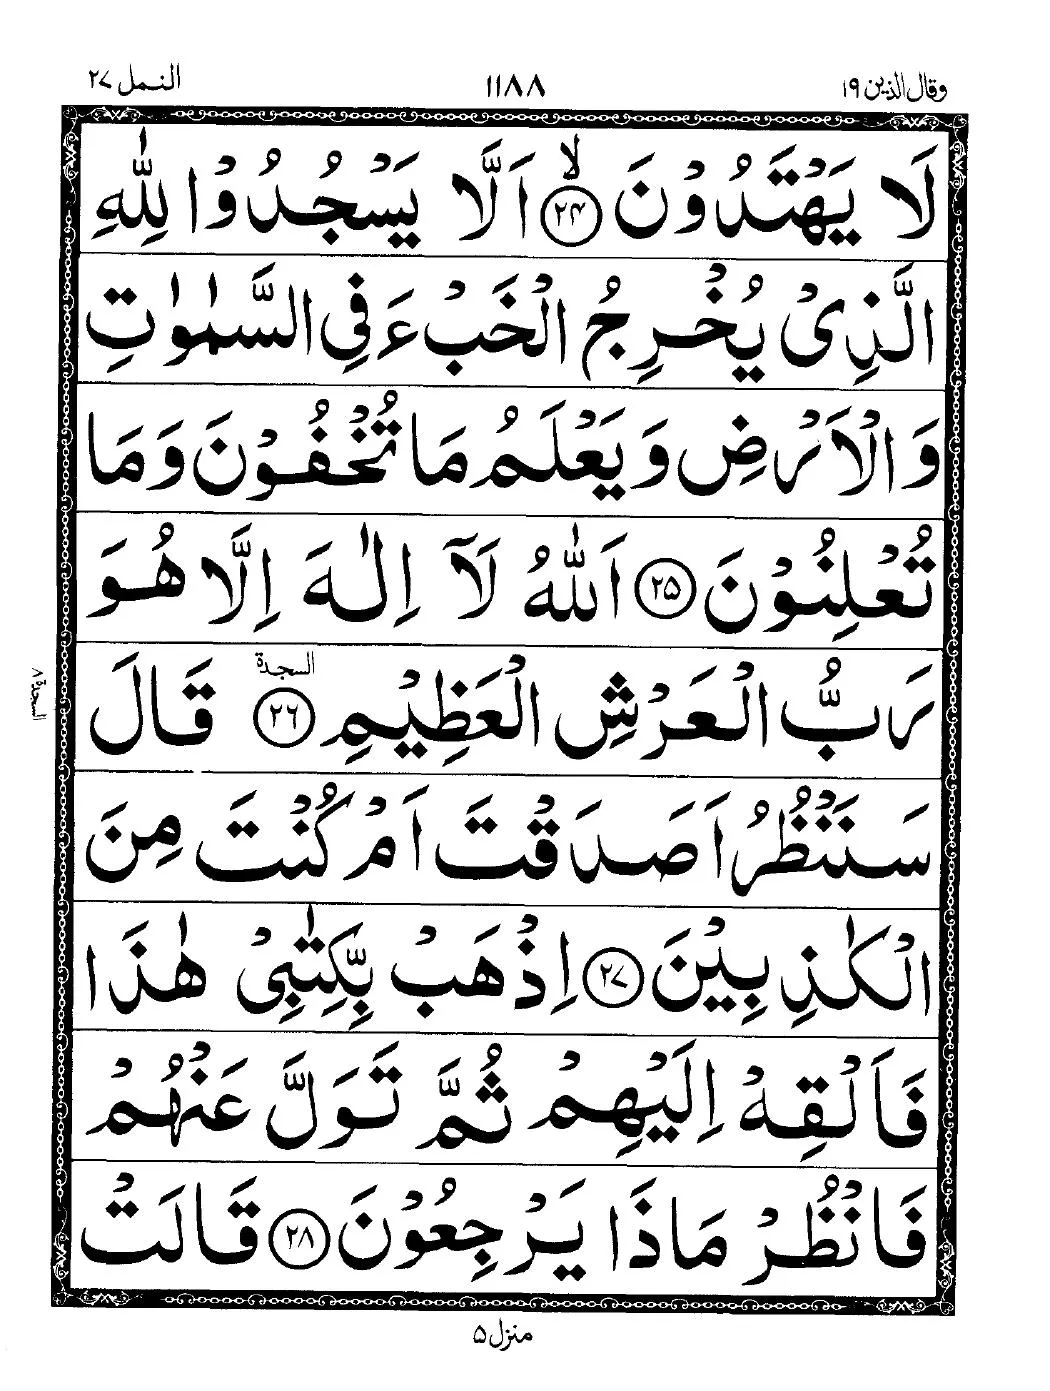 وقال الذين ١٩
١١٨٨
النمل ٢٧
لَا يَهْتَدُوْنَ ۙ﴿۲۴﴾ اَلَّا يَسْجُدُوْا لِلّٰهِ
الَّذِىْ يُخْرِجُ الْخَبْءَ فِى السَّمٰوٰتِ
وَالْاَرْضِ وَيَعْلَمُ مَا تُخْفُوْنَ وَمَا
تُعْلِنُوْنَ ﴿۲۵﴾ اَللّٰهُ لَآ اِلٰهَ اِلَّا هُوَ
رَبُّ الْعَرْشِ الْعَظِيْمِ ﴿۲۶﴾ السجدة قَالَ
السجدة ٨
سَنَنْظُرُ اَصَدَقْتَ اَمْ كُنْتَ مِنَ
الْكٰذِبِيْنَ ﴿۲۷﴾ اِذْهَبْ بِّكِتٰبِىْ هٰذَا
فَاَلْقِهْ اِلَيْهِمْ ثُمَّ تَوَلَّ عَنْهُمْ
فَانْظُرْ مَاذَا يَرْجِعُوْنَ ﴿۲۸﴾ قَالَتْ
منزل ۵